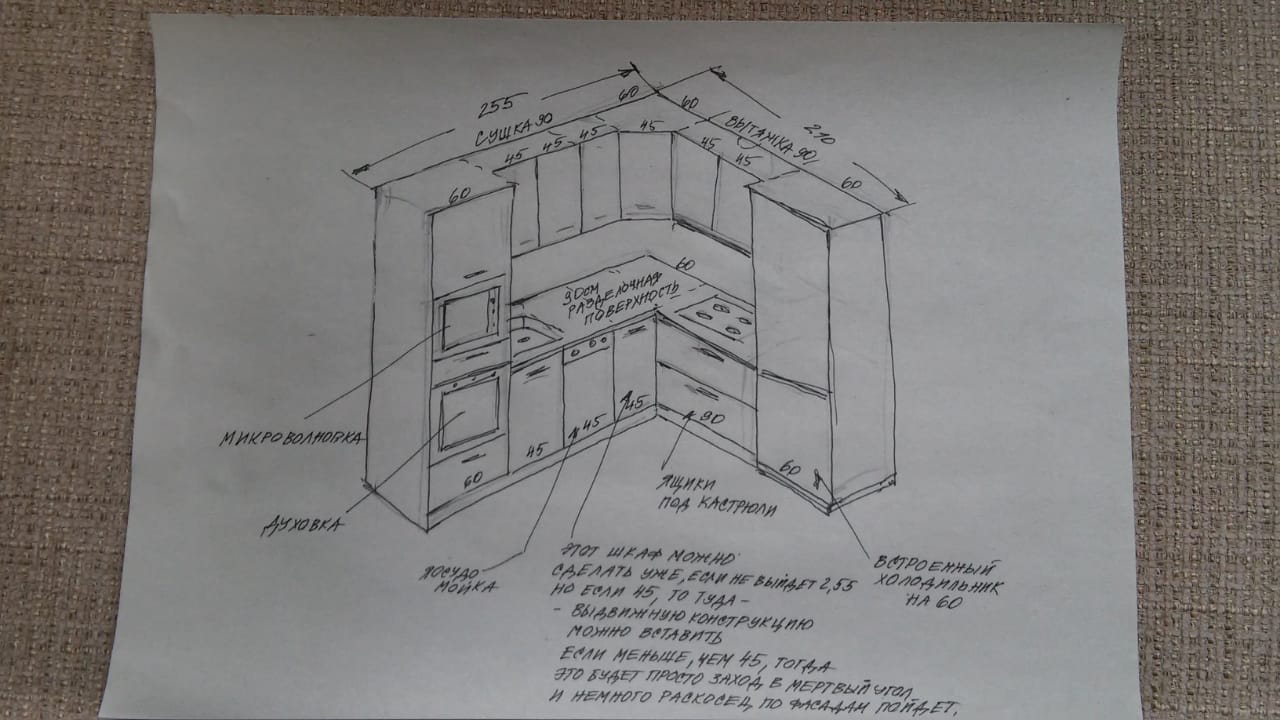 255
60
60
210
СУШКА 90
ВЫТЯЖКА 90
45
45
45
45
45
45
60
60
60
90СМ
РАЗДЕЛОЧНАЯ
ПОВЕРХНОСТЬ
МИКРОВОЛНОВКА
ДУХОВКА
60
45
45
45
90
60
ПОСУДО
МОЙКА
ЯЩИКИ
ПОД КАСТРЮЛИ
ВСТРОЕННЫЙ
ХОЛОДИЛЬНИК
НА 60
ЭТОТ ШКАФ МОЖНО
СДЕЛАТЬ УЖЕ, ЕСЛИ НЕ ВЫЙДЕТ 2,55
НО ЕСЛИ 45, ТО ТУДА -
- ВЫДВИЖНУЮ КОНСТРУКЦИЮ
МОЖНО ВСТАВИТЬ
ЕСЛИ МЕНЬШЕ, ЧЕМ 45, ТОГДА
ЭТО БУДЕТ ПРОСТО ЗАХОД В МЕРТВЫЙ УГОЛ
И НЕМНОГО РАСКОСЕЦ ПО ФАСАДАМ ПОЙДЕТ.